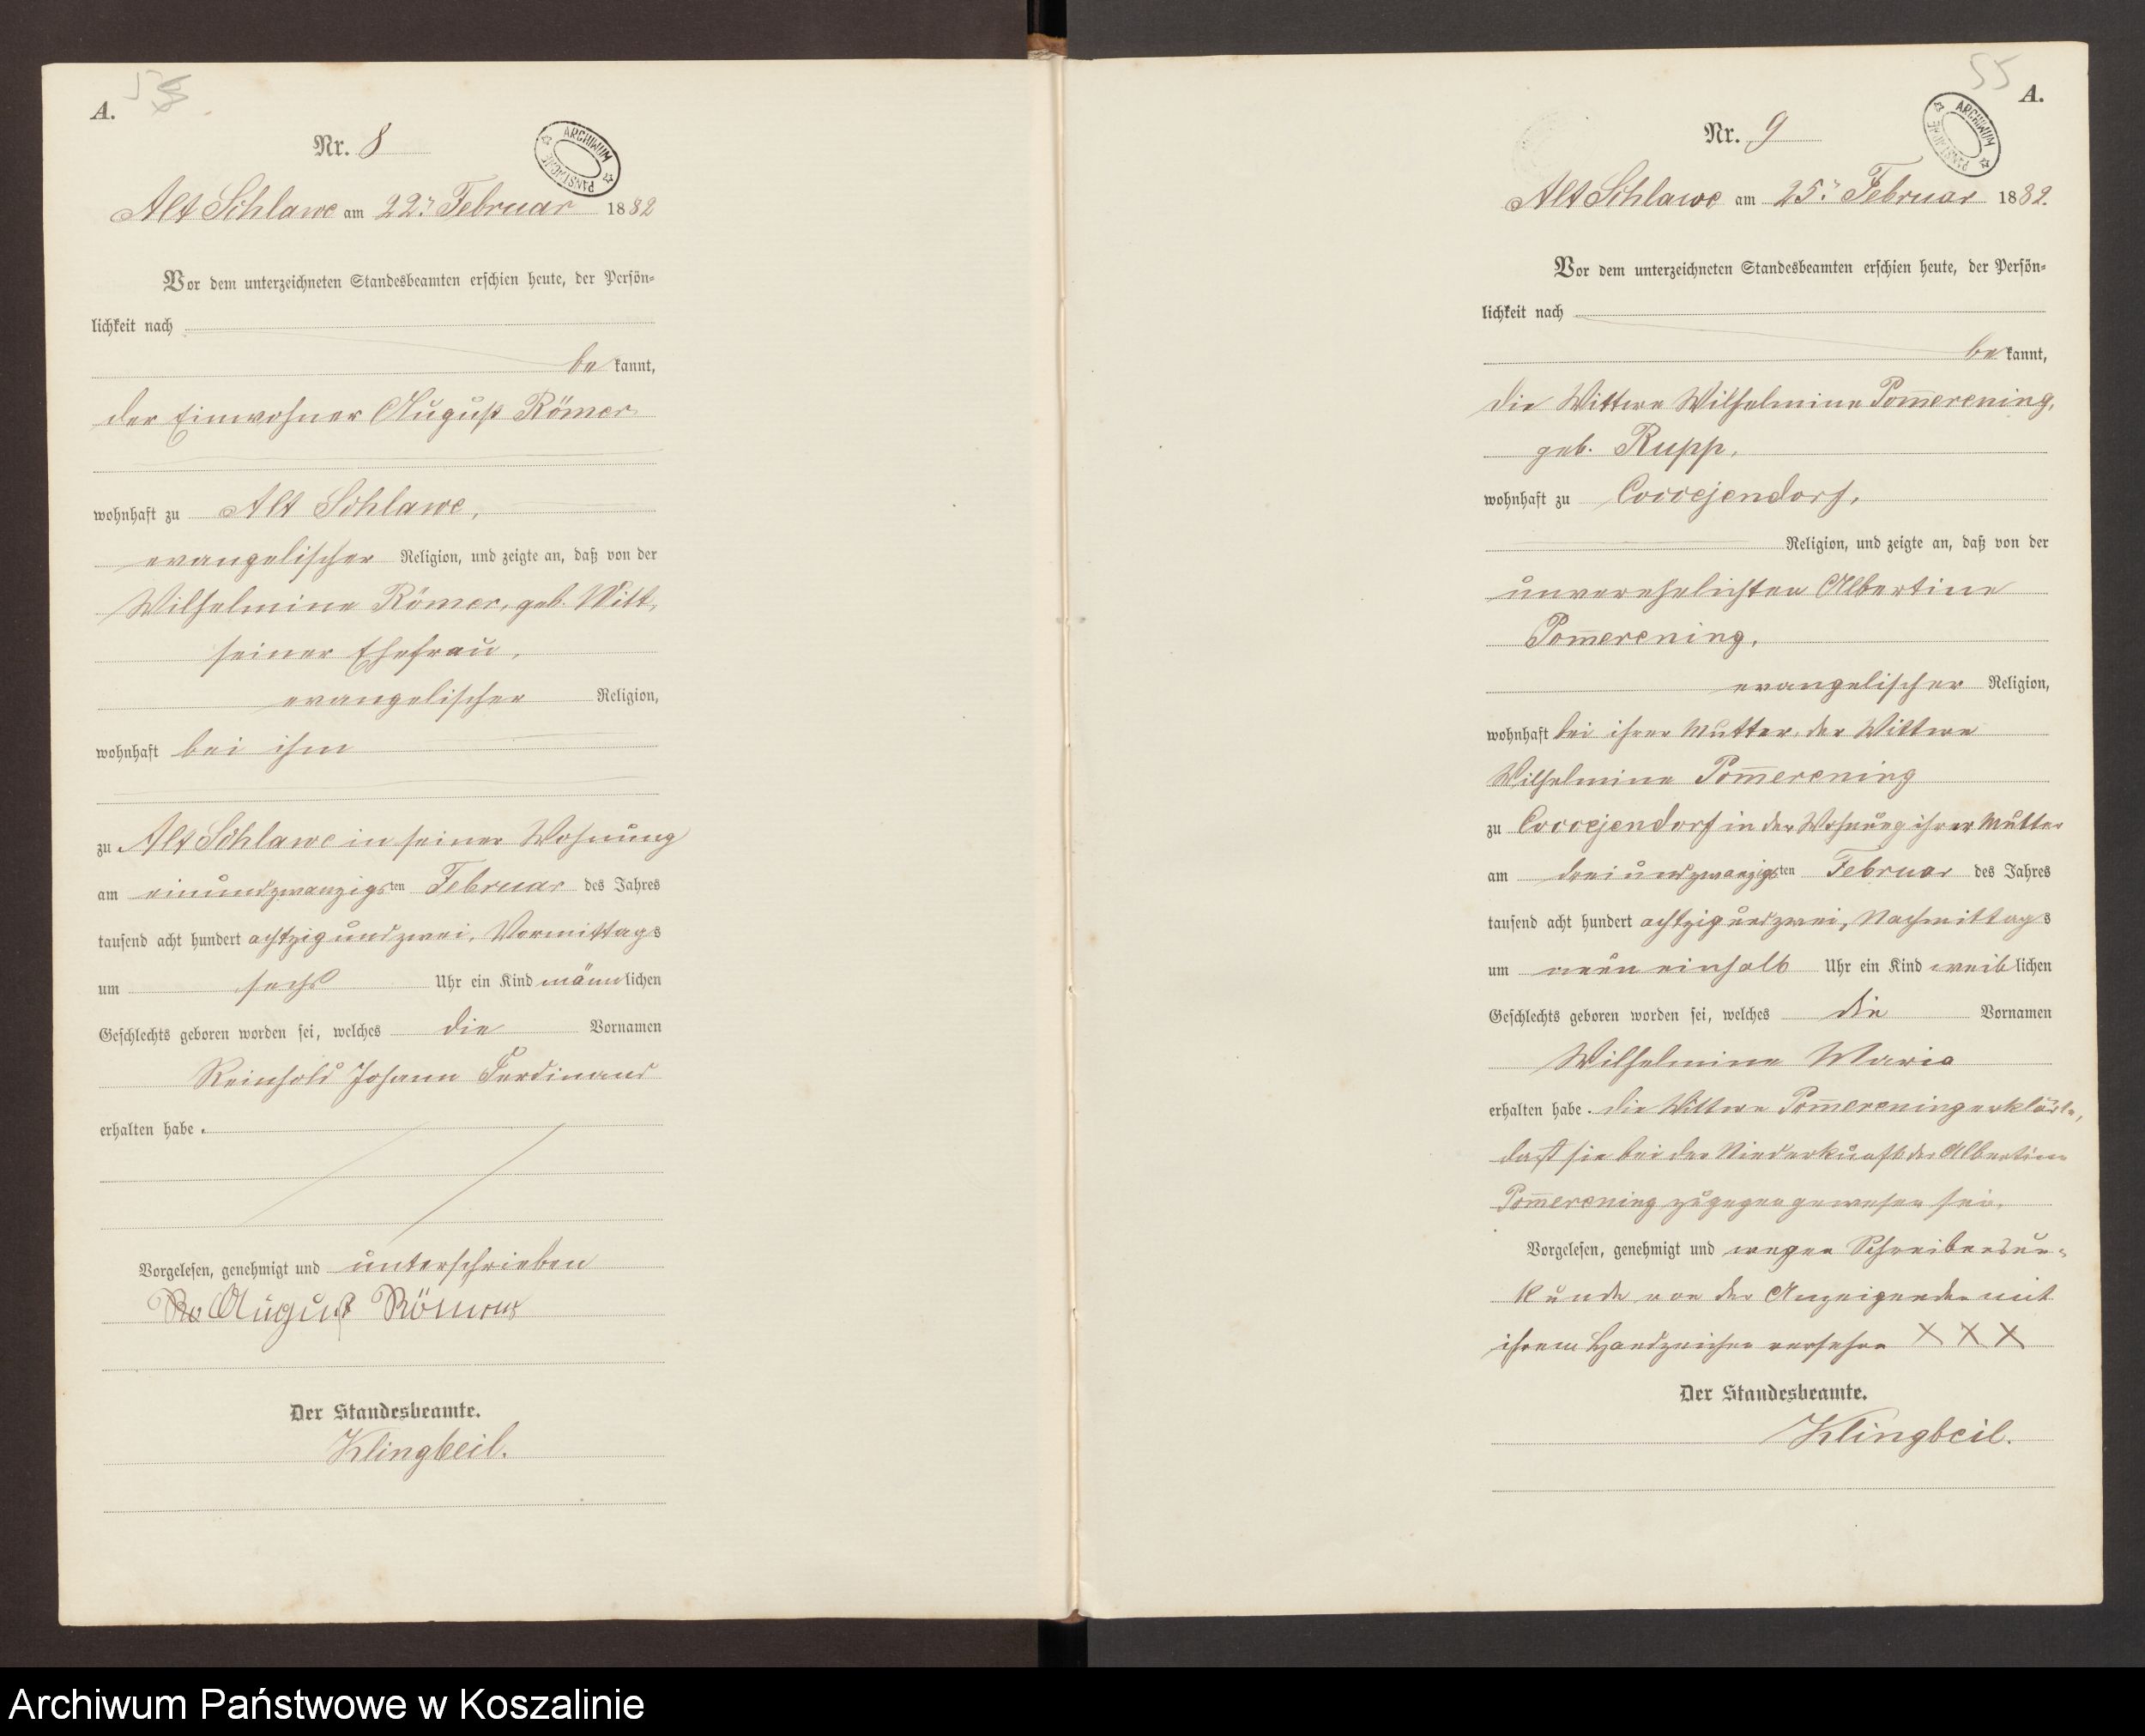 A.
Nr. 8
ARCHIWUM PAŃSTWOWE
Alt Schlawe am 22. Februar 1882
Vor dem unterzeichneten Standesbeamten erschien heute, der Persön-
lichkeit nach
be kannt,
der Einwohner August Römer
wohnhaft zu Alt Schlawe,
evangelischer Religion, und zeigte an, daß von der
Wilhelmine Römer, geb. Witt,
seiner Ehefrau,
evangelischer Religion,
wohnhaft bei ihm
zu Alt Schlawe in seiner Wohnung
am einundzwanzigsten Februar des Jahres
tausend acht hundert achtzig und zwei, Vormittags
um sechs Uhr ein Kind männlichen
Geschlechts geboren worden sei, welches die Vornamen
Reinhold Johann Ferdinand
erhalten habe.
Vorgelesen, genehmigt und unterschrieben
August Römer
Der Standesbeamte.
Klingbeil.
55
A.
Nr. 9
ARCHIWUM PAŃSTWOWE
Alt Schlawe am 25. Februar 1882.
Vor dem unterzeichneten Standesbeamten erschien heute, der Persön-
lichkeit nach
be kannt,
die Wittwe Wilhelmine Pom̅erening,
geb. Rupp,
wohnhaft zu Coccejendorf,
Religion, und zeigte an, daß von der
unverehelichten Albertine
Pom̅erening,
evangelischer Religion,
wohnhaft bei ihrer Mutter, der Wittwe
Wilhelmine Pom̅erening
zu Coccejendorf in der Wohnung ihrer Mutter
am dreiundzwanzigsten Februar des Jahres
tausend acht hundert achtzig und zwei, Nachmittags
um neun einhalb Uhr ein Kind weiblichen
Geschlechts geboren worden sei, welches die Vornamen
Wilhelmine Maria
erhalten habe. Die Wittwe Pom̅erening erklärte,
daß sie bei der Niederkunft der Albertine
Pom̅erening zugegen gewesen sei.
Vorgelesen, genehmigt und wegen Schreibensun-
kunde von der Anzeigenden mit
ihrem Handzeichen versehen X X X
Der Standesbeamte.
Klingbeil.
Archiwum Państwowe w Koszalinie